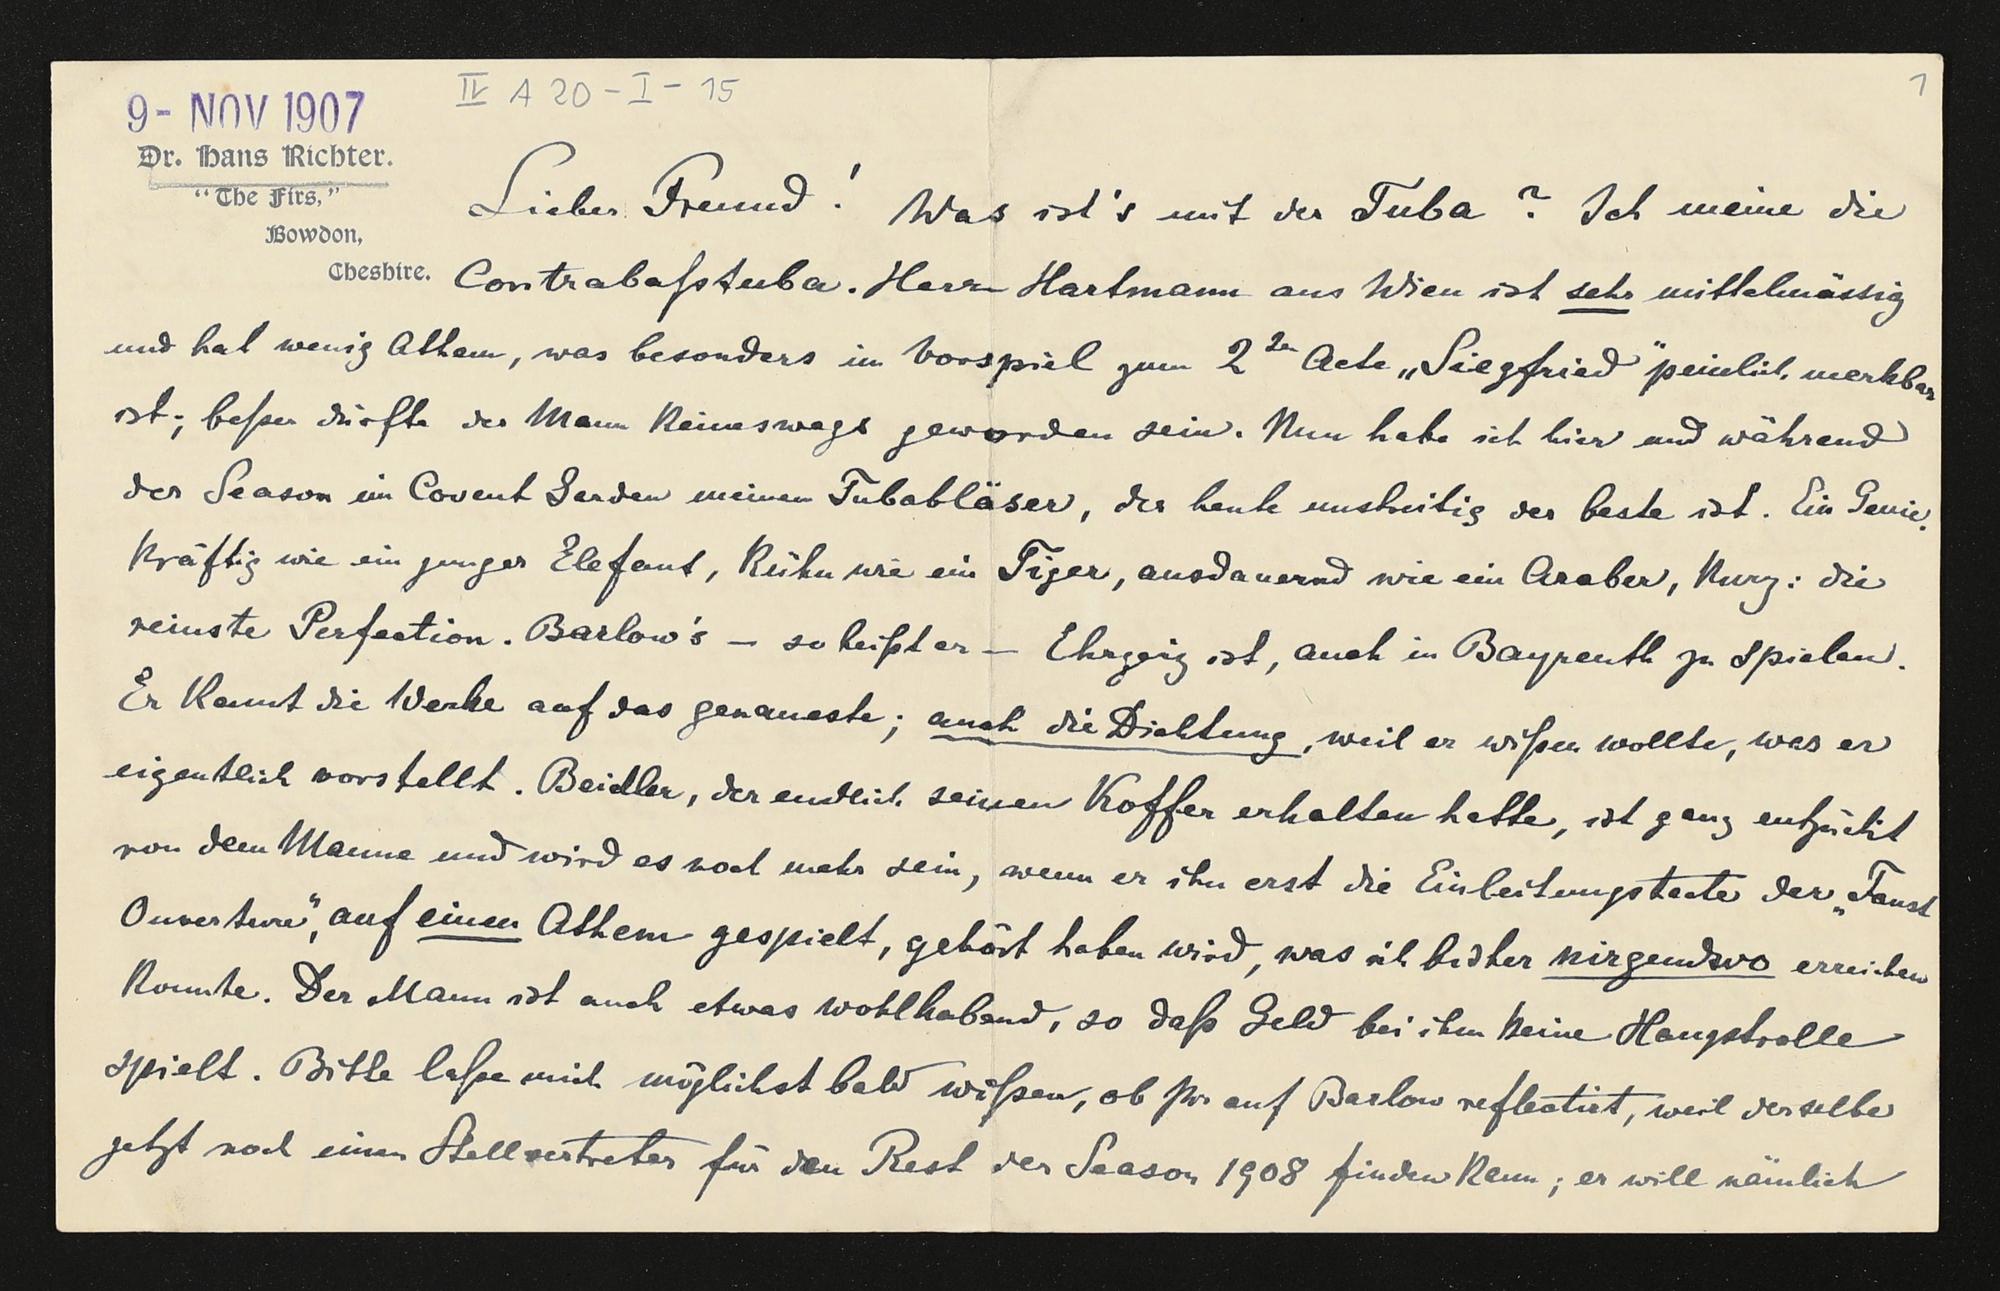 IV A 20 - I - 15
1
9 - NOV 1907
Dr. Hans Richter.
"The Firs,"
Bowdon,
Cheshire.
Lieber Freund! Was ist's mit der Tuba? Ich meine die
Contrabaßtuba. Herr Hartmann aus Wien ist sehr mittelmässig
und hat wenig Athem, was besonders im Vorspiel zum 2ten Acte „Siegfried" peinlich merkbar
ist; beßer dürfte der Mann keineswegs geworden sein. Nun habe ich hier und während
der Season im Covent Garden meinen Tubabläser, der heute unstreitig der beste ist. Ein Genie.
Kräftig wie ein junger Elefant, kühn wie ein Tiger, ausdauernd wie ein Araber, kurz: die
reinste Perfection. Barlow's – so heißt er – Ehrgeiz ist, auch in Bayreuth zu spielen.
Er kennt die Werke auf das genaueste; auch die Dichtung, weil er wißen wollte, was er
eigentlich vorstellt. Beidler, der endlich seinen Koffer erhalten hatte, ist ganz entzückt
von dem Manne und wird es noch mehr sein, wenn er ihn erst die Einleitungstacte der „Faust
Ouverture", auf einen Athem gespielt, gehört haben wird, was ich bisher nirgendswo erreichen
konnte. Der Mann ist auch etwas wohlhabend, so daß Geld bei ihm keine Hauptrolle
spielt. Bitte laße mich möglichst bald wißen, ob Ihr auf Barlow reflectirt, weil derselbe
jetzt noch einen Stellvertreter für den Rest der Season 1908 finden kann; er will nämlich